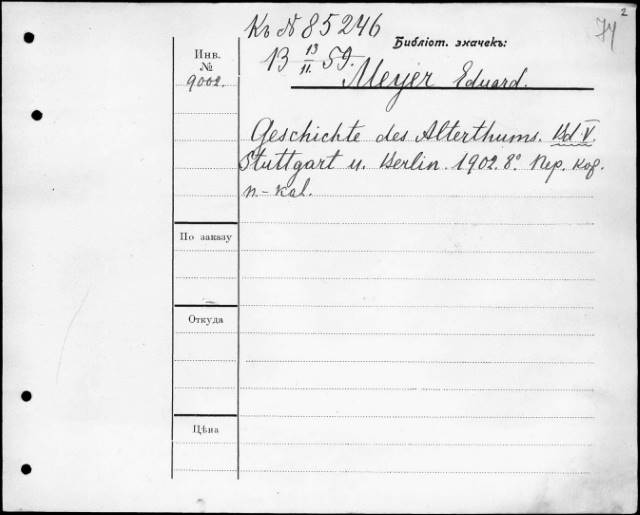 2
74
Къ № 85246
Библіот. значекъ:
В 13/II 59.
Инв.
№
9002.
Meyer Eduard.
Geschichte des Alterthums. Bd. V.
Stuttgart u. Berlin. 1902. 8° Пер. кор.
п.-кал.
По заказу
Откуда
Цѣна